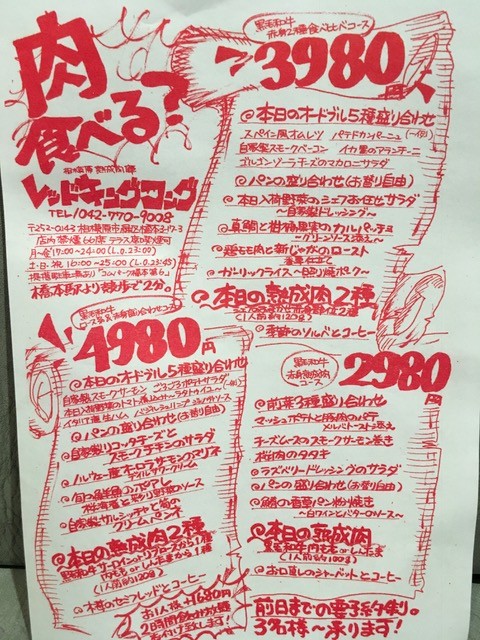 肉
食べる?
相模原 熟成肉師
レッドキングコング
TEL/042-770-9008
〒252-0143 相模原市緑区橋本3-17-3
店内禁煙66席 テラス席
月~金 17:00~24:00(L.O.23:00)
土・日・祝 16:00~25:00(L.O.23:45)
橋本駅より徒歩で2分。
黒毛和牛
赤身2種食べ比べコース
3980円
本日のオードブル5種盛り合わせ
スペイン風オムレツ パテドカンパーニュ
自家製スモークベーコン イカ墨のアランチーニ
ゴルゴンゾーラチーズのマカロニサラダ
パンの盛り合わせ(お替り自由)
本日入荷野菜のシェフお任せサラダ
~自家製ドレッシング~
真鯛と柑橘果実のカルパッチョ
~グリーンソース添え~
鶏もも肉と新じゃがのロースト
ガーリックライス~目の前焼ポーク~
本日の熟成肉2種
(1人前約120g)
季節のソルベとコーヒー
黒毛和牛
4980円
本日のオードブル5種盛り合わせ
自家製スモークサーモン ごろごろポテトサラダ
パンの盛り合わせ(お替り自由)
自家製リコッタチーズと
スモークチキンのサラダ
ノルウェー産 大トロサーモンのマリネ
旬の鮮魚のポアレ
桜海老と彩り野菜のソース
自家製サルシッチャと筍の
クリームペンネ
本日の熟成肉2種
黒毛和牛 サーロイン or リブロースから1種
内もも or しんたまから1種
(1人前約120g)
苺のセミフレッドとコーヒー
お1人様 +1680円
2時間飲み放題
お付け致します!
黒毛和牛
赤身食成肉
コース
2980円
前菜3種盛り合わせ
マッシュポテトと豚肉のパテ
メルバトースト添え
チーズムースのスモークサーモン巻き
桜肉のタタキ
ラズベリードレッシングのサラダ
パンの盛り合わせ(お替り自由)
鰆の香草パン粉焼き
~白ワインとバターのソース~
本日の熟成肉
黒毛和牛 内もも or しんたま
(1人前約100g)
お口直しのシャーベットとコーヒー
前日までの要予約制。
3名様~承ります!